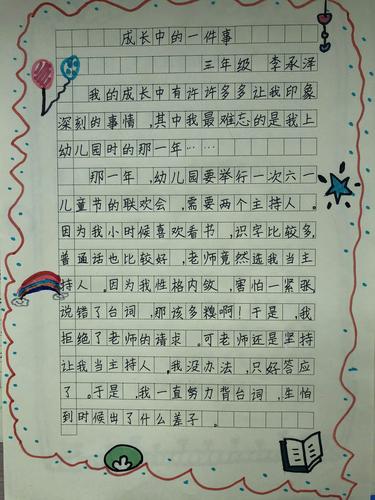 成长中的一件事
三年级 李承泽
我的成长中有许许多多让我印象
深刻的事情,其中我最难忘的是我上
幼儿园时的那一年……
那一年,幼儿园要举行一次六一
儿童节的联欢会,需要两个主持人。
因为我小时候喜欢看书,识字比较多,
普通话也比较好,老师竟然选我当主
持人。因为我性格内敛,害怕一紧张,
说错了台词,那该多糗啊!于是,我
拒绝了老师的请求。可老师还是坚持
让我当主持人。我没办法,只好答应
了。于是,我一直努力背台词,生怕
到时候出了什么差子。